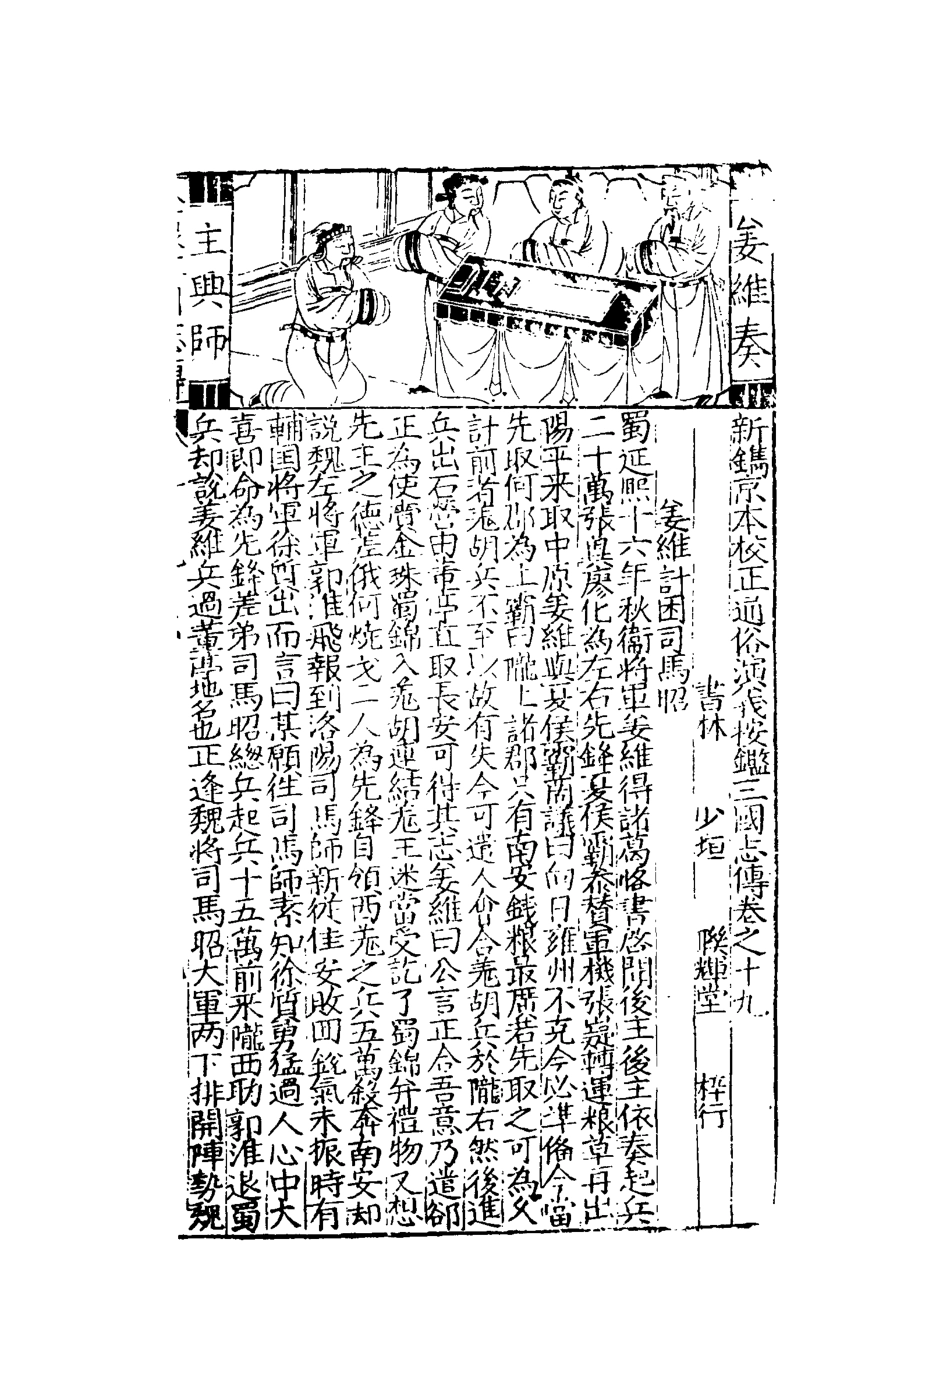 姜維奏
主興師
新鐫京本校正通俗演義按鑑三國志傳卷之十九
書林 少垣 聮輝堂 梓行
姜維計困司馬昭
蜀延熙十六年秋衛將軍姜維得諸葛恪書啓聞後主後主依奏起兵
二十萬張翼廖化為左右先鋒夏侯霸叅賛軍機張嶷轉運粮草再出
陽平来取中原姜維與夏侯霸商議曰向日雍州不克今必準俻今當
先取何郡為上霸曰隴上諸郡只有南安錢粮最廣若先取之可為久
計前者羗胡兵不至以故有失今可遣人會合羗胡兵於隴右然後進
兵出石營由董亭直取長安可侍其志姜維曰公言正合吾意乃遣郤
正為使賫金珠蜀錦入羗胡連結羗王迷當受訖了蜀錦并禮物又想
先主之德差俄何燒戈二人為先鋒自領西羗之兵五萬殺奔南安却
說魏左將軍郭淮飛報到洛陽司馬師新從佳安敗囬銳氣未振時有
輔国將軍徐質出而言曰某願徃司馬師素知徐質勇猛過人心中大
喜即命為先鋒差弟司馬昭緫兵起兵十五萬前來隴西助郭淮退蜀
兵却説姜維兵過董亭地名也正逢魏將司馬昭大軍两下排開陣勢魏